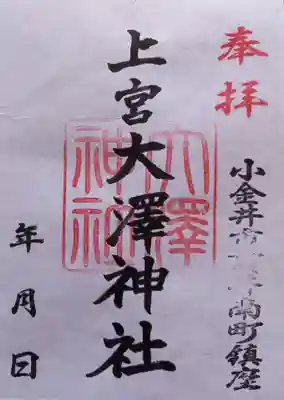 奉拝
小金井市 南町鎮座
上宮大澤神社
大澤神社
年 月 日